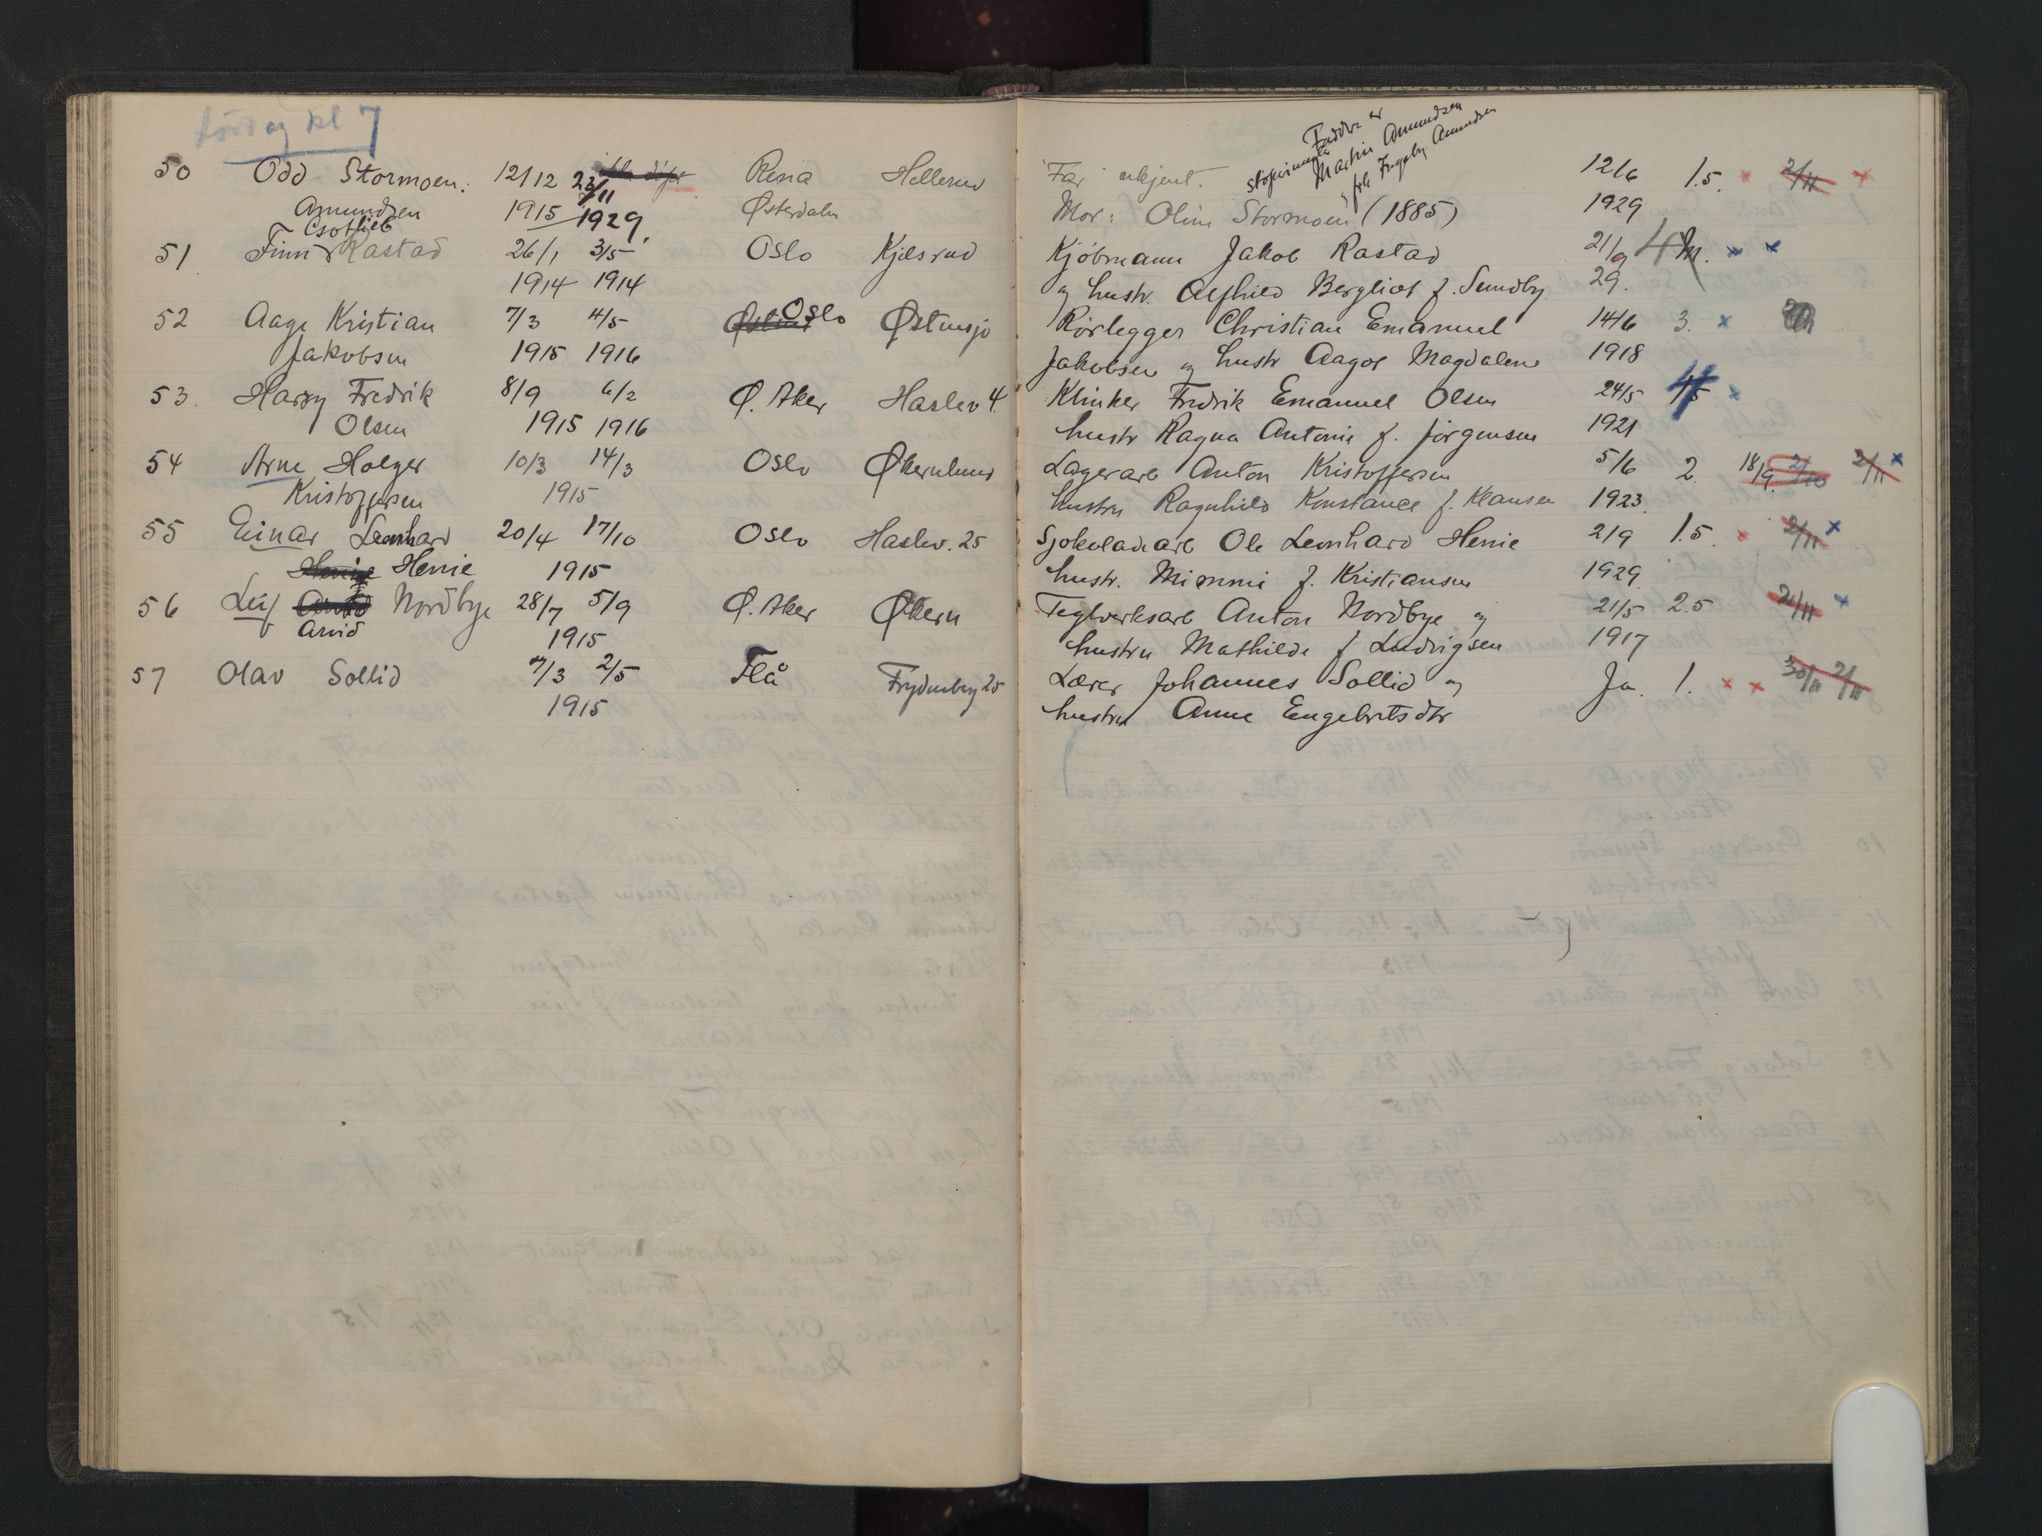 kl 7
Fadder er
Martin Amundsen
Ingeborg Amundsen
50 Odd Stormoen. 12/12 23/11 Rena Hellerud Far ukjent. 12/6 1.5. 2/11
Amundsen 1915 1929. Østerdalen Mor: Oline Stormoen (1885) 1929
Gotlieb
51 Finn Rastad 26/1 3/5 Oslo Kjelsrud Kjøbmann Jakob Rastad 21/9 4 M.
1914 1914 og hustr. Alfhild Bergliot f. Sundby. 29.
52 Aage Kristian 7/3 4/5 Oslo Østensjø Rørlegger Christian Emanuel 14/6 3.
Jakobsen 1915 1916 Jakobsen og hustr Aagot Magdalene 1918
53. Harry Fredrik 8/9 6/2 Ø. Aker Haslev 4. Klinker Fredrik Emanuel Olsen 24/5
Olsen 1915 1916 hustr Ragna Antonie f. Jørgensen 1921
54 Arne Holger 10/3 14/3 Oslo Økernlund Lagerarb Anton Kristoffersen 5/6 2. 18/9. 2/10 2/11
Kristoffersen 1915 hustru Ragnhild Konstance f. Klausen 1923.
55 Einar Leonhard 20/4 17/10 Oslo Haslev. 25 Sjokoladearb Ole Leonhard Henie 2/9 1.5. 2/11
Henie Henie 1915 hustr. Mimmi f. Kristiansen 1929.
56 Leif Arvid Nordbye 28/7 5/9 Ø. Aker Økern Teglverksarb Anton Nordbye og 21/5 2.5 2/11
Arvid 1915 hustru Mathilde f Ludvigsen 1917
57 Olav Sollid 7/3 2/5 Flå Frydenberg 25 Lærer Johannes Sollid og Ja. 1. 30/11 2/11
1915 hustru Anne Engebretsdtr